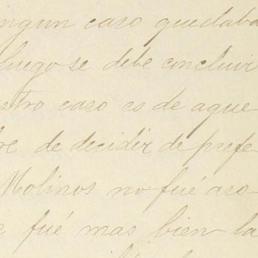 ningun caso quedaba
luego se debe concluir
stro caso es de aque
re de decidir de prefe
Molinos no fué aso
e fué mas bien la